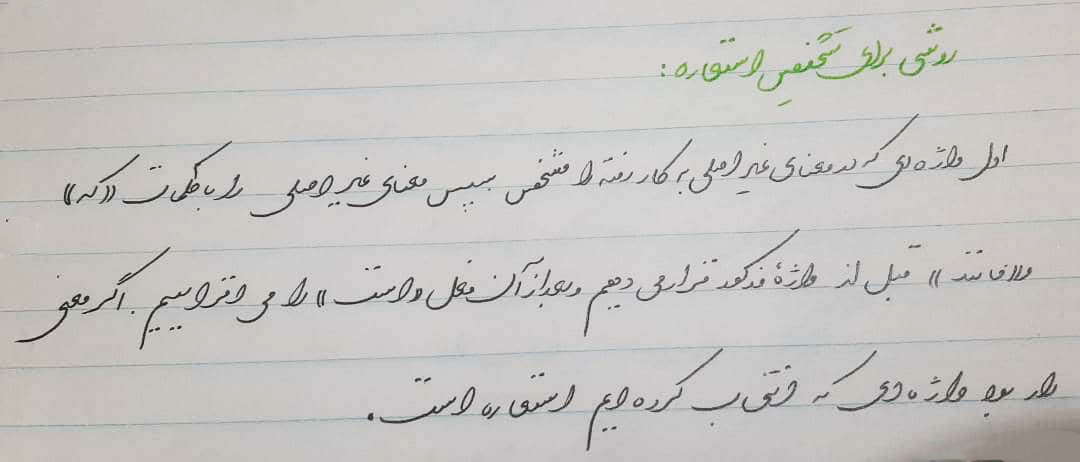 روشی برای تشخیص استعاره :
اول واژه‌ای که در معنای غیر اصلی به کار رفته را مشخص سپس معنای غیر اصلی را با کلمات «که»
و «مانند» قبل از واژهٔ مذکور قرار می دهیم و بعد از آن فعل «است» را می افزاییم . اگر معنی
دار بود واژه‌ای که انتخاب کرده ایم استعاره است .